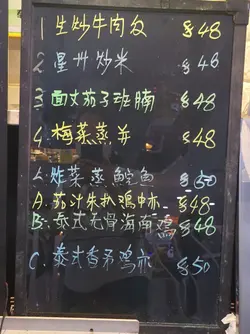 1 生炒牛肉反 $48
2 星州炒米 $48
3 面文茄子班腩 $48
4. 梅菜蒸 $48
炸菜蒸鱼 $50
A. 茄汁朱扒鸡中亦 $48
B. 泰式无骨海南鸡 $48
C. 泰式香茅鸡亦 $50